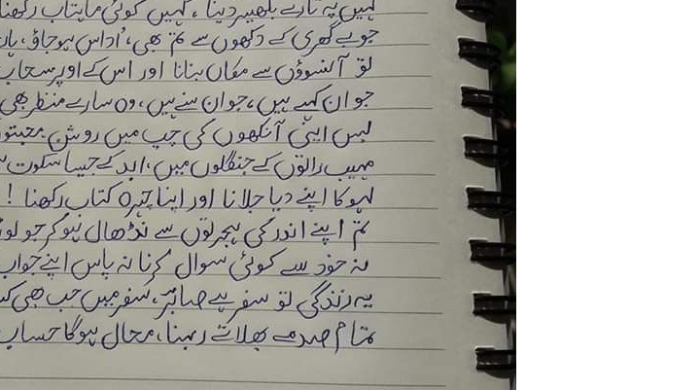 کہیں پہ تارے بکھیر دینا ، کہیں کوئی ماہتاب رکھنا
جو بے گھری کے دکھوں سے تم بھی، اُداس ہو جاؤ،
تو آنسوؤں سے مکاں بنانا اور اس کے اوپر سحاب
جو ان کہے ہیں، جو ان سنے ہیں، وہ سارے منظر بھی
بس اپنی آنکھوں کی چپ میں روشن
مہیب راتوں کے جنگلوں میں، ابد کے جیسا سکوت
لہو کا اپنے دیا جلانا اور اپنا چہرہ کتاب رکھنا !
تم اپنے اندر کی ہجرتوں سے نڈھال ہو کر جو
نہ خود سے کوئی سوال کرنا نہ پاس اپنے جواب
یہ زندگی تو سفر ہے صابر، سفر میں جب بھی
تمام صدمے بھلاتے رہنا، محال ہوگا حساب